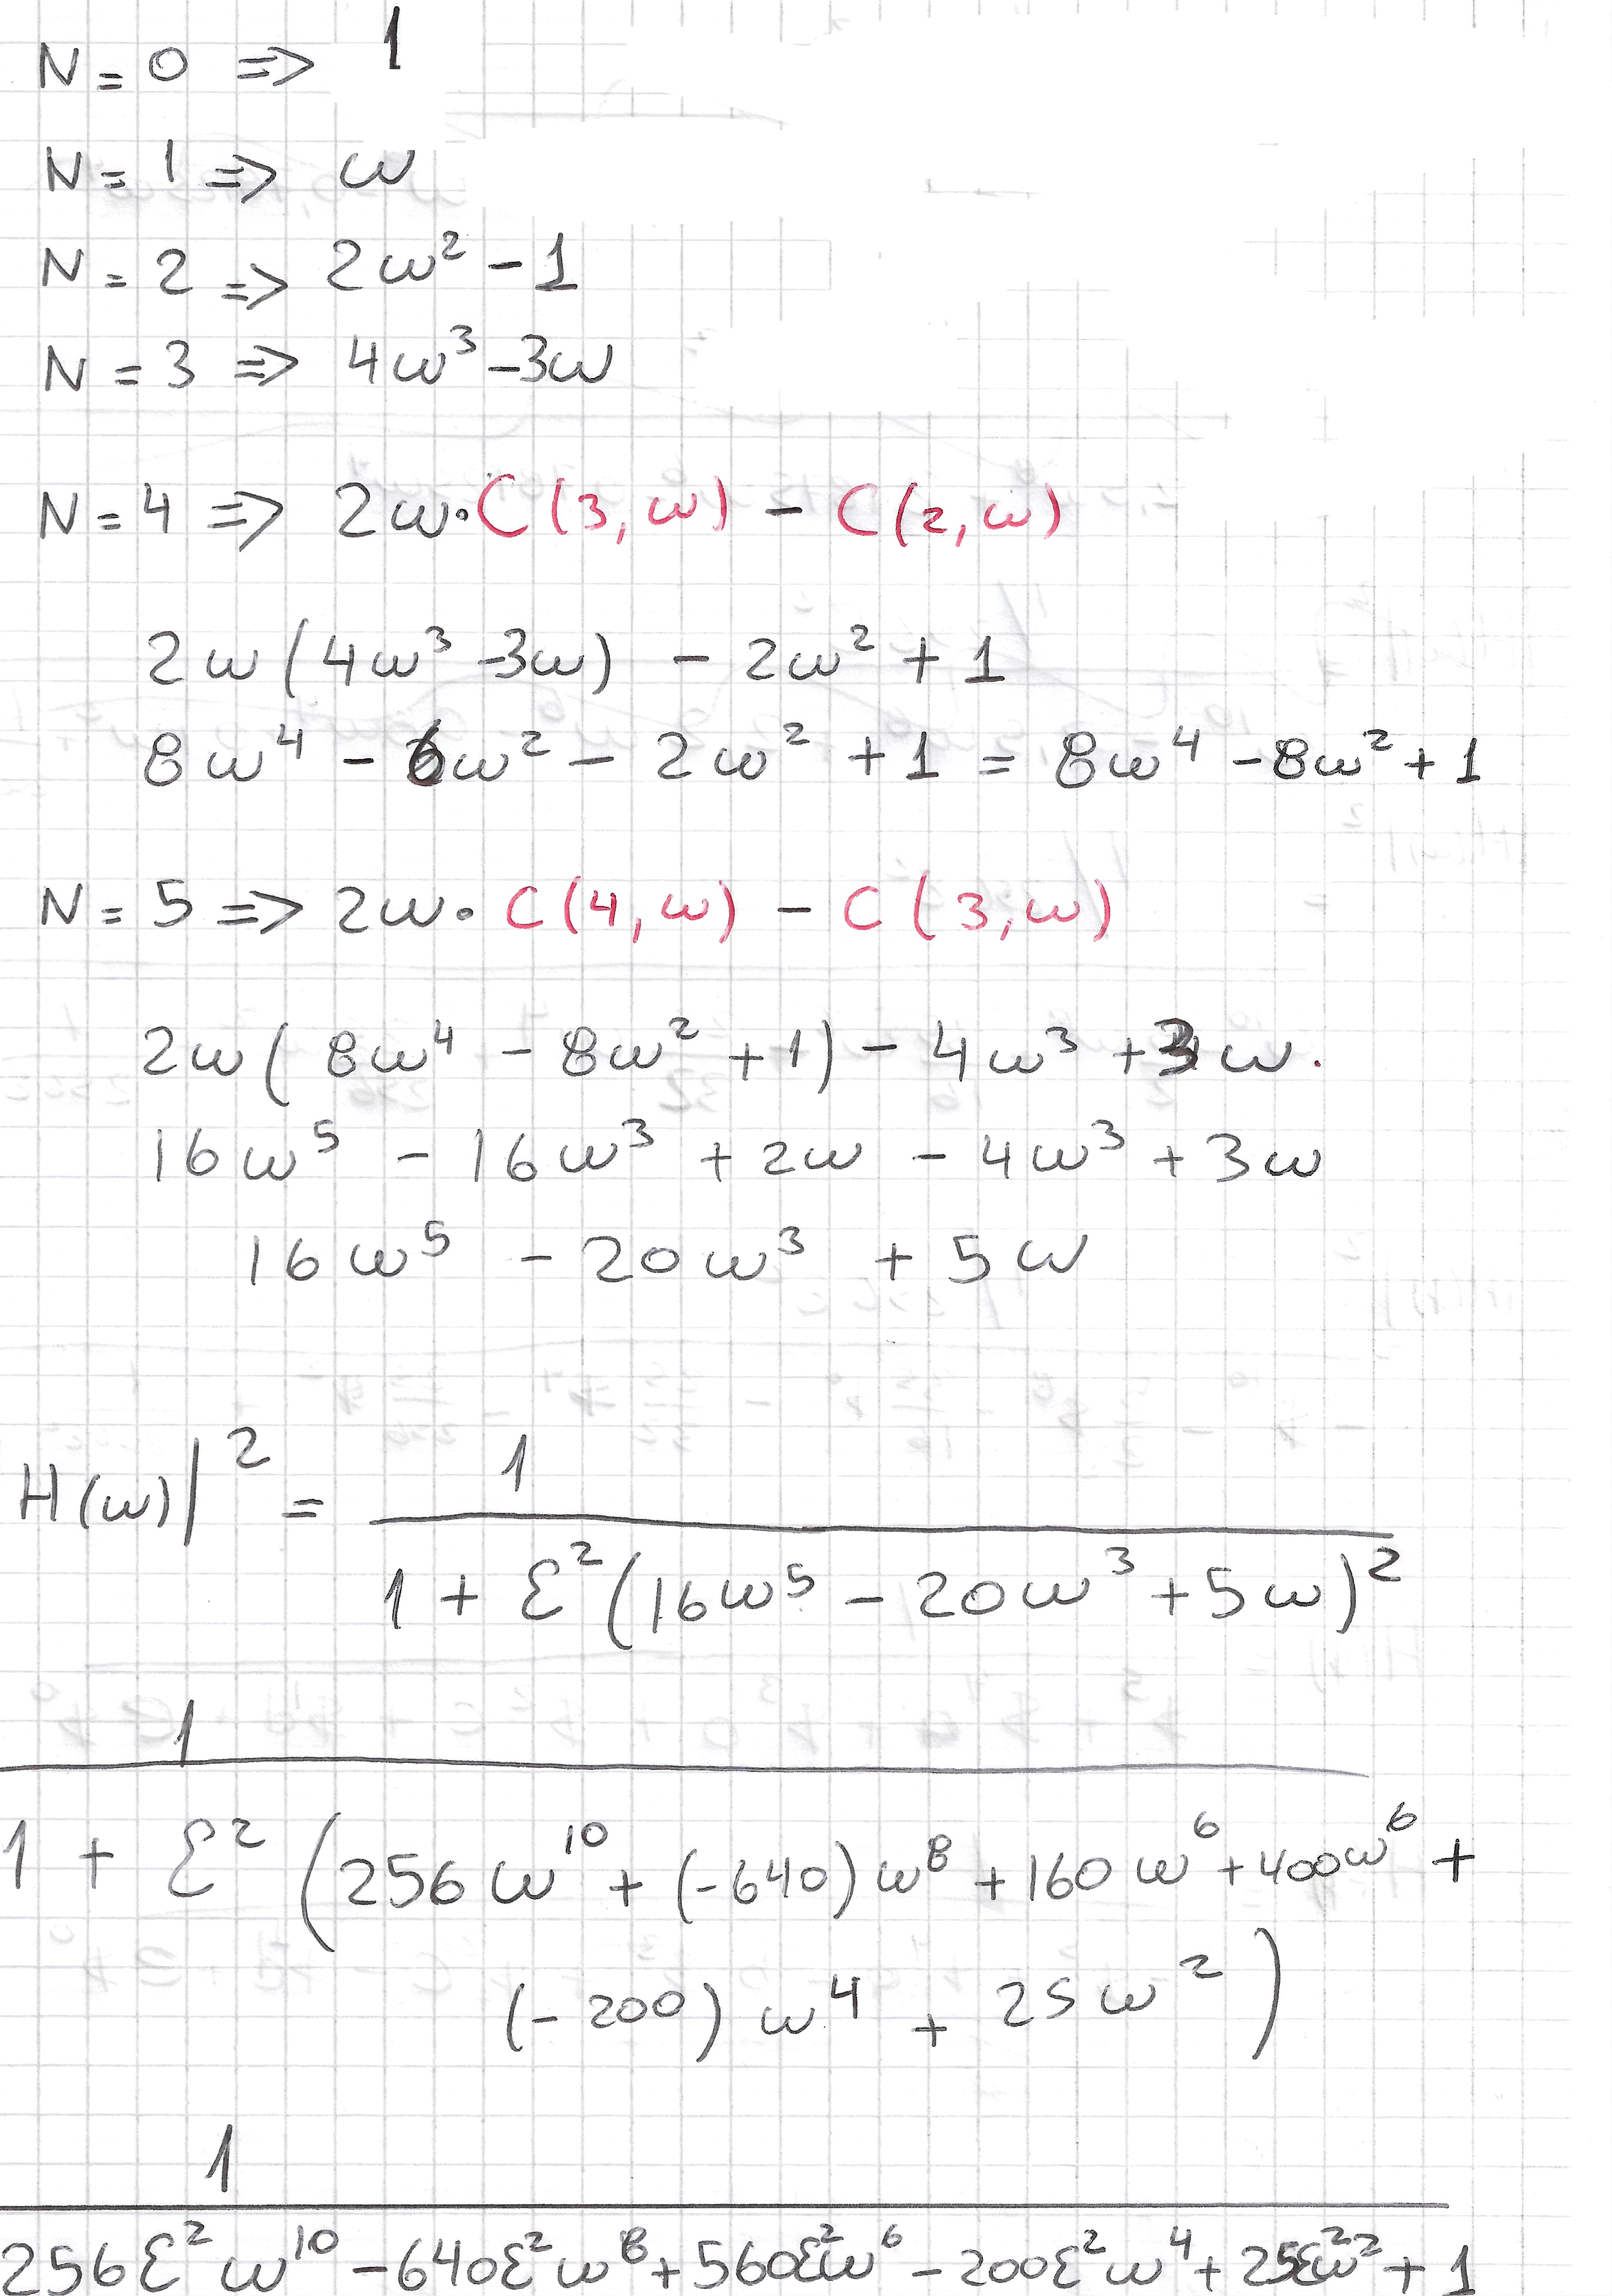 N = 0 => 1
N = 1 => ω
N = 2 => 2ω² - 1
N = 3 => 4ω³ - 3ω
N = 4 => 2ω·C(3,ω) - C(2,ω)
2ω(4ω³ - 3ω) - 2ω² + 1
8ω⁴ - 6ω² - 2ω² + 1 = 8ω⁴ - 8ω² + 1
N = 5 => 2ω·C(4,ω) - C(3,ω)
2ω(8ω⁴ - 8ω² + 1) - 4ω³ + 3ω.
16ω⁵ - 16ω³ + 2ω - 4ω³ + 3ω
16ω⁵ - 20ω³ + 5ω
1
H(ω)|² =
1 + ε²(16ω⁵ - 20ω³ + 5ω)²
1
1 + ε²(256ω¹⁰ + (-640)ω⁸ + 160ω⁶ + 400ω⁶ +
(-200)ω⁴ + 25ω²)
1
256ε²ω¹⁰ - 640ε²ω⁸ + 560ε²ω⁶ - 200ε²ω⁴ + 25ε²ω² + 1